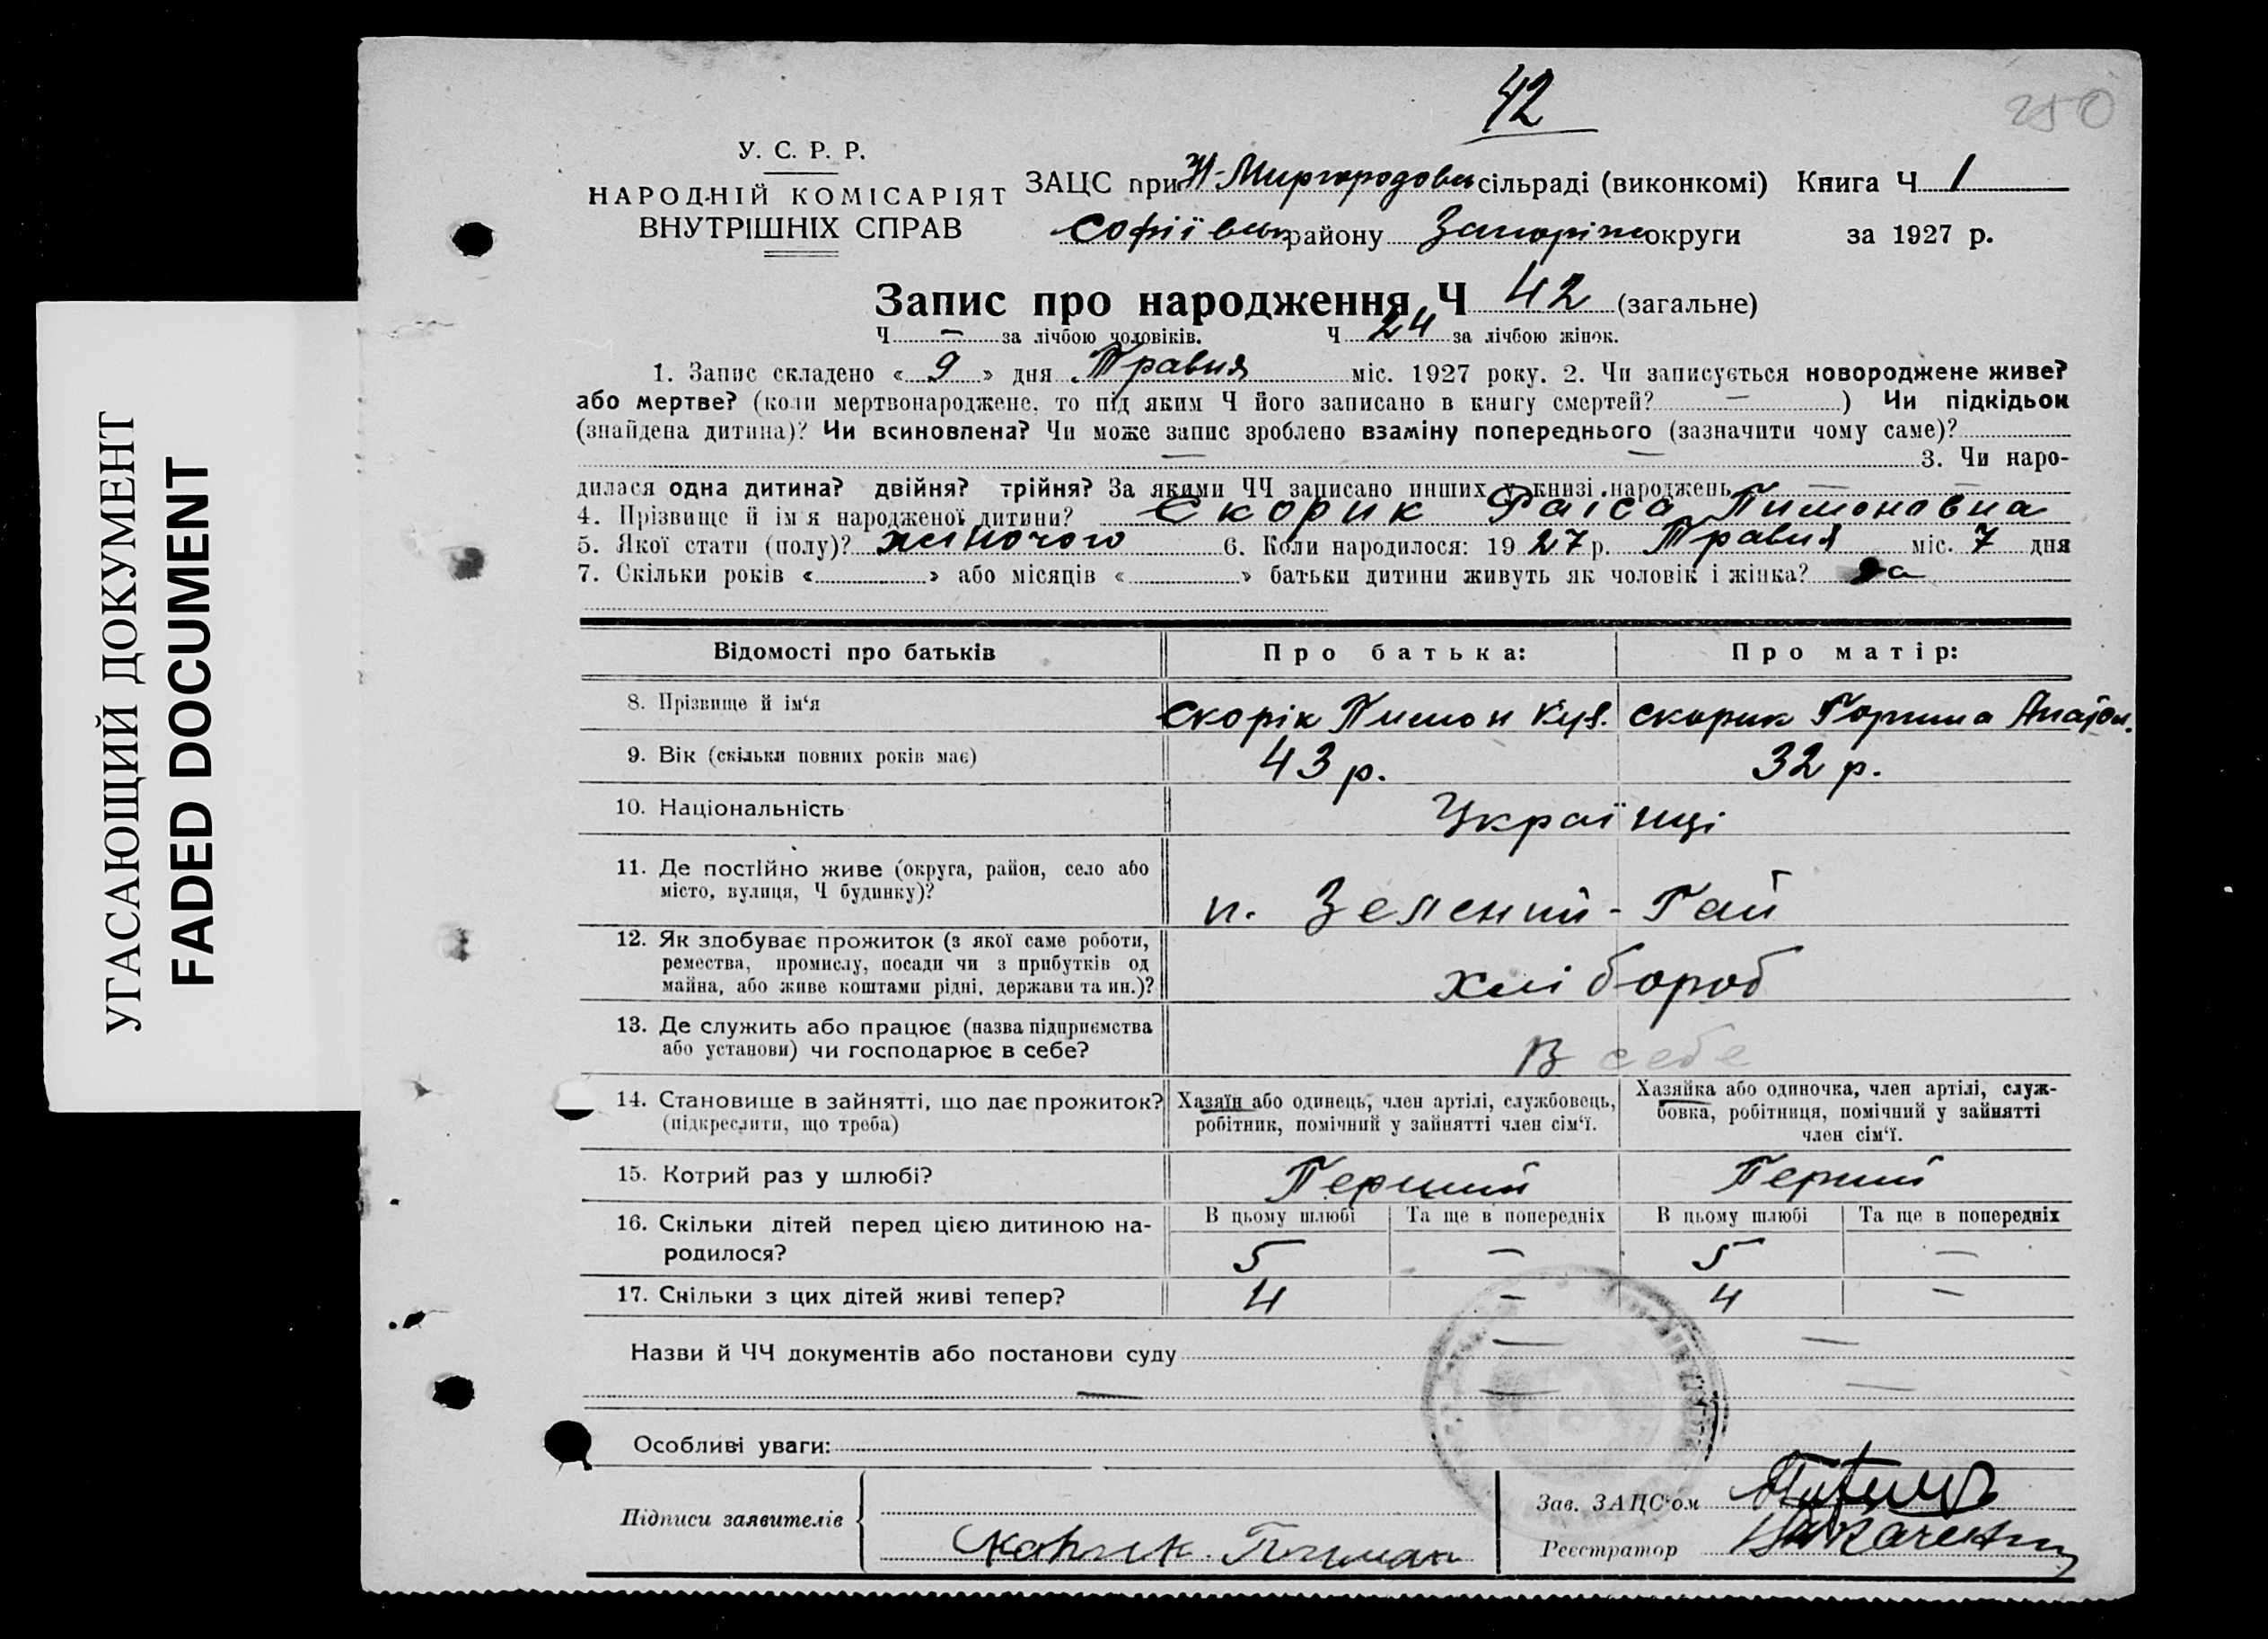 42
250
У. С. Р. Р.
НАРОДНІЙ КОМІСАРІЯТ
ВНУТРІШНІХ СПРАВ
ЗАЦС при Н-Миргородовськ сільраді (виконкомі) Книга Ч 1
Софіївськ району Запоріж округи за 1927 р.
Запис про народження Ч 42 (загальне)
Ч — за лічбою чоловіків. Ч 24 за лічбою жінок.
1. Запис складено « 9 » дня Травня міс. 1927 року. 2. Чи записується новороджене живе?
або мертве? (коли мертвонароджене, то під яким Ч його записано в книгу смертей? — ) Чи підкідьок
(знайдена дитина)? Чи всиновлена? Чи може запис зроблено взаміну попереднього (зазначити чому саме)?
— — 3. Чи наро-
дилася одна дитина? двійня? трійня? За якими ЧЧ записано инших у книзі народжень — —
4. Прізвище й ім'я народженої дитини? Скорик Раіса Пимоновна
5. Якої статі (полу)? жиночого 6. Коли народилося: 1927 р. Травня міс. 7 дня
7. Скільки років « » або місяців « » батьки дитини живуть як чоловік і жінка? да
Відомості про батьків Про батька: Про матір:
8. Прізвище й ім'я Скорік Пимон Скорик
9. Вік (скільки повних років має) 43 р. 32 р.
10. Національність Українці
11. Де постійно живе (округа, район, село або
місто, вулиця, Ч будинку)?
п. Зелений-Гай
12. Як здобуває прожиток (з якої саме роботи,
ремества, промислу, посади чи з прибутків од
майна, або живе коштами рідні, держави та ин.)?
хлібороб
13. Де служить або працює (назва підприємства
або установи) чи господарює в себе?
В себе
14. Становище в зайнятті, що дає прожиток?
(підкреслити, що треба)
Хазяїн або одинець, член артілі, службовець,
робітник, помічний у зайнятті член сім'ї.
Хазяйка або одиночка, член артілі, служ-
бовка, робітниця, помічний у зайнятті
член сім'ї.
15. Котрий раз у шлюбі? Перший Перший
16. Скільки дітей перед цією дитиною на-
родилося?
В цьому шлюбі Та ще в попередніх В цьому шлюбі Та ще в попередніх
5 — 5 —
17. Скільки з цих дітей живі тепер? 4 — 4 —
Назви й ЧЧ документів або постанови суду — —
— — —
Особливі уваги:
Підписи заявителів
Скорик Пиман
Зав. ЗАЦС'ом
Реєстратор
УГАСАЮЩИЙ ДОКУМЕНТ
FADED DOCUMENT